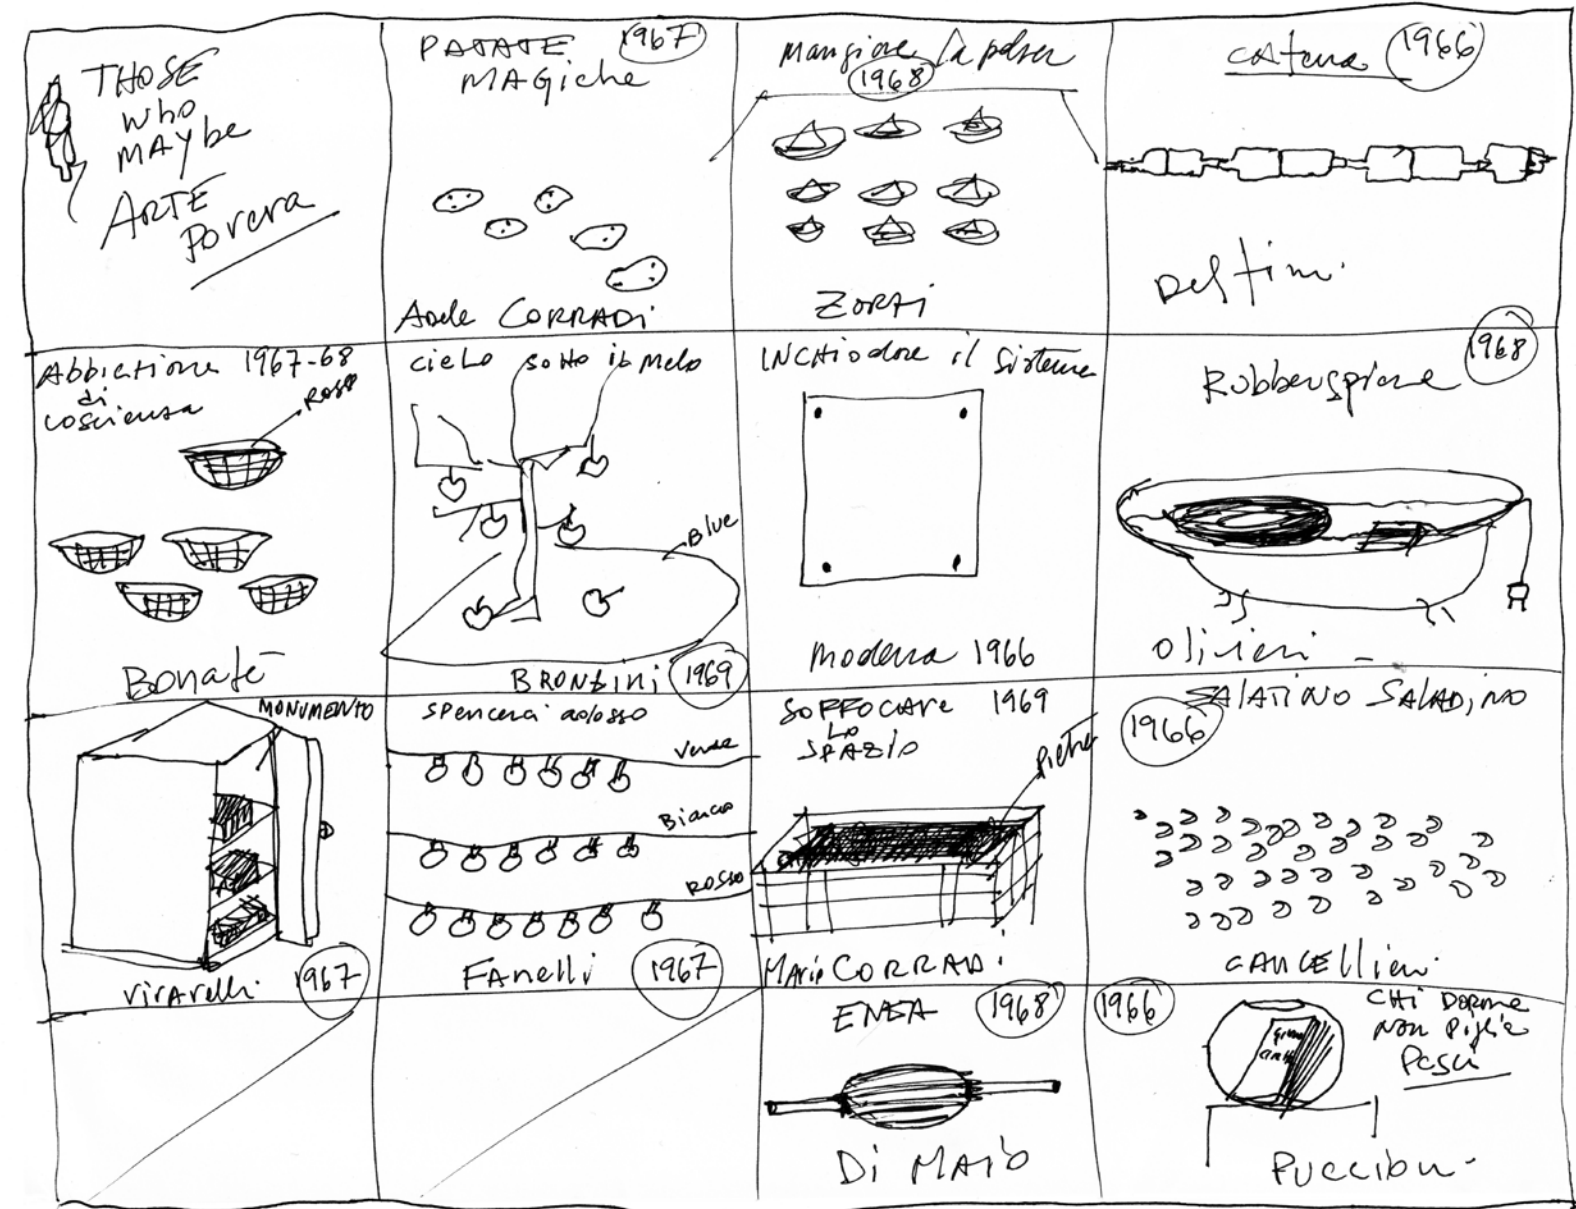 THOSE
who
MAYbe
ARTE
Povera
PATATE 1967
MAGiche
Adele CORRADi
Mangiare la polver
1968
ZORZi
catena 1966
Delfini.
Abbiezione 1967-68
di
coscienza
Rosse
Bonate
cielo sotto il melo
Blue
BRONZINI 1969
INCHiodare il sistema
Modena 1966
1968
Olivieri
MONUMENTO
1967
Spencerai adosso
Verde
Bianco
Rosso
Fanelli 1967
SOFFOCARe 1969
Lo
SPAZIO
pietre
Mario CORRADi
SALATINO SALADINO
1966
CANCELLieri
ENEA 1968
Di MAio
1966
CHi DORMe
Non Piglia
Pesci